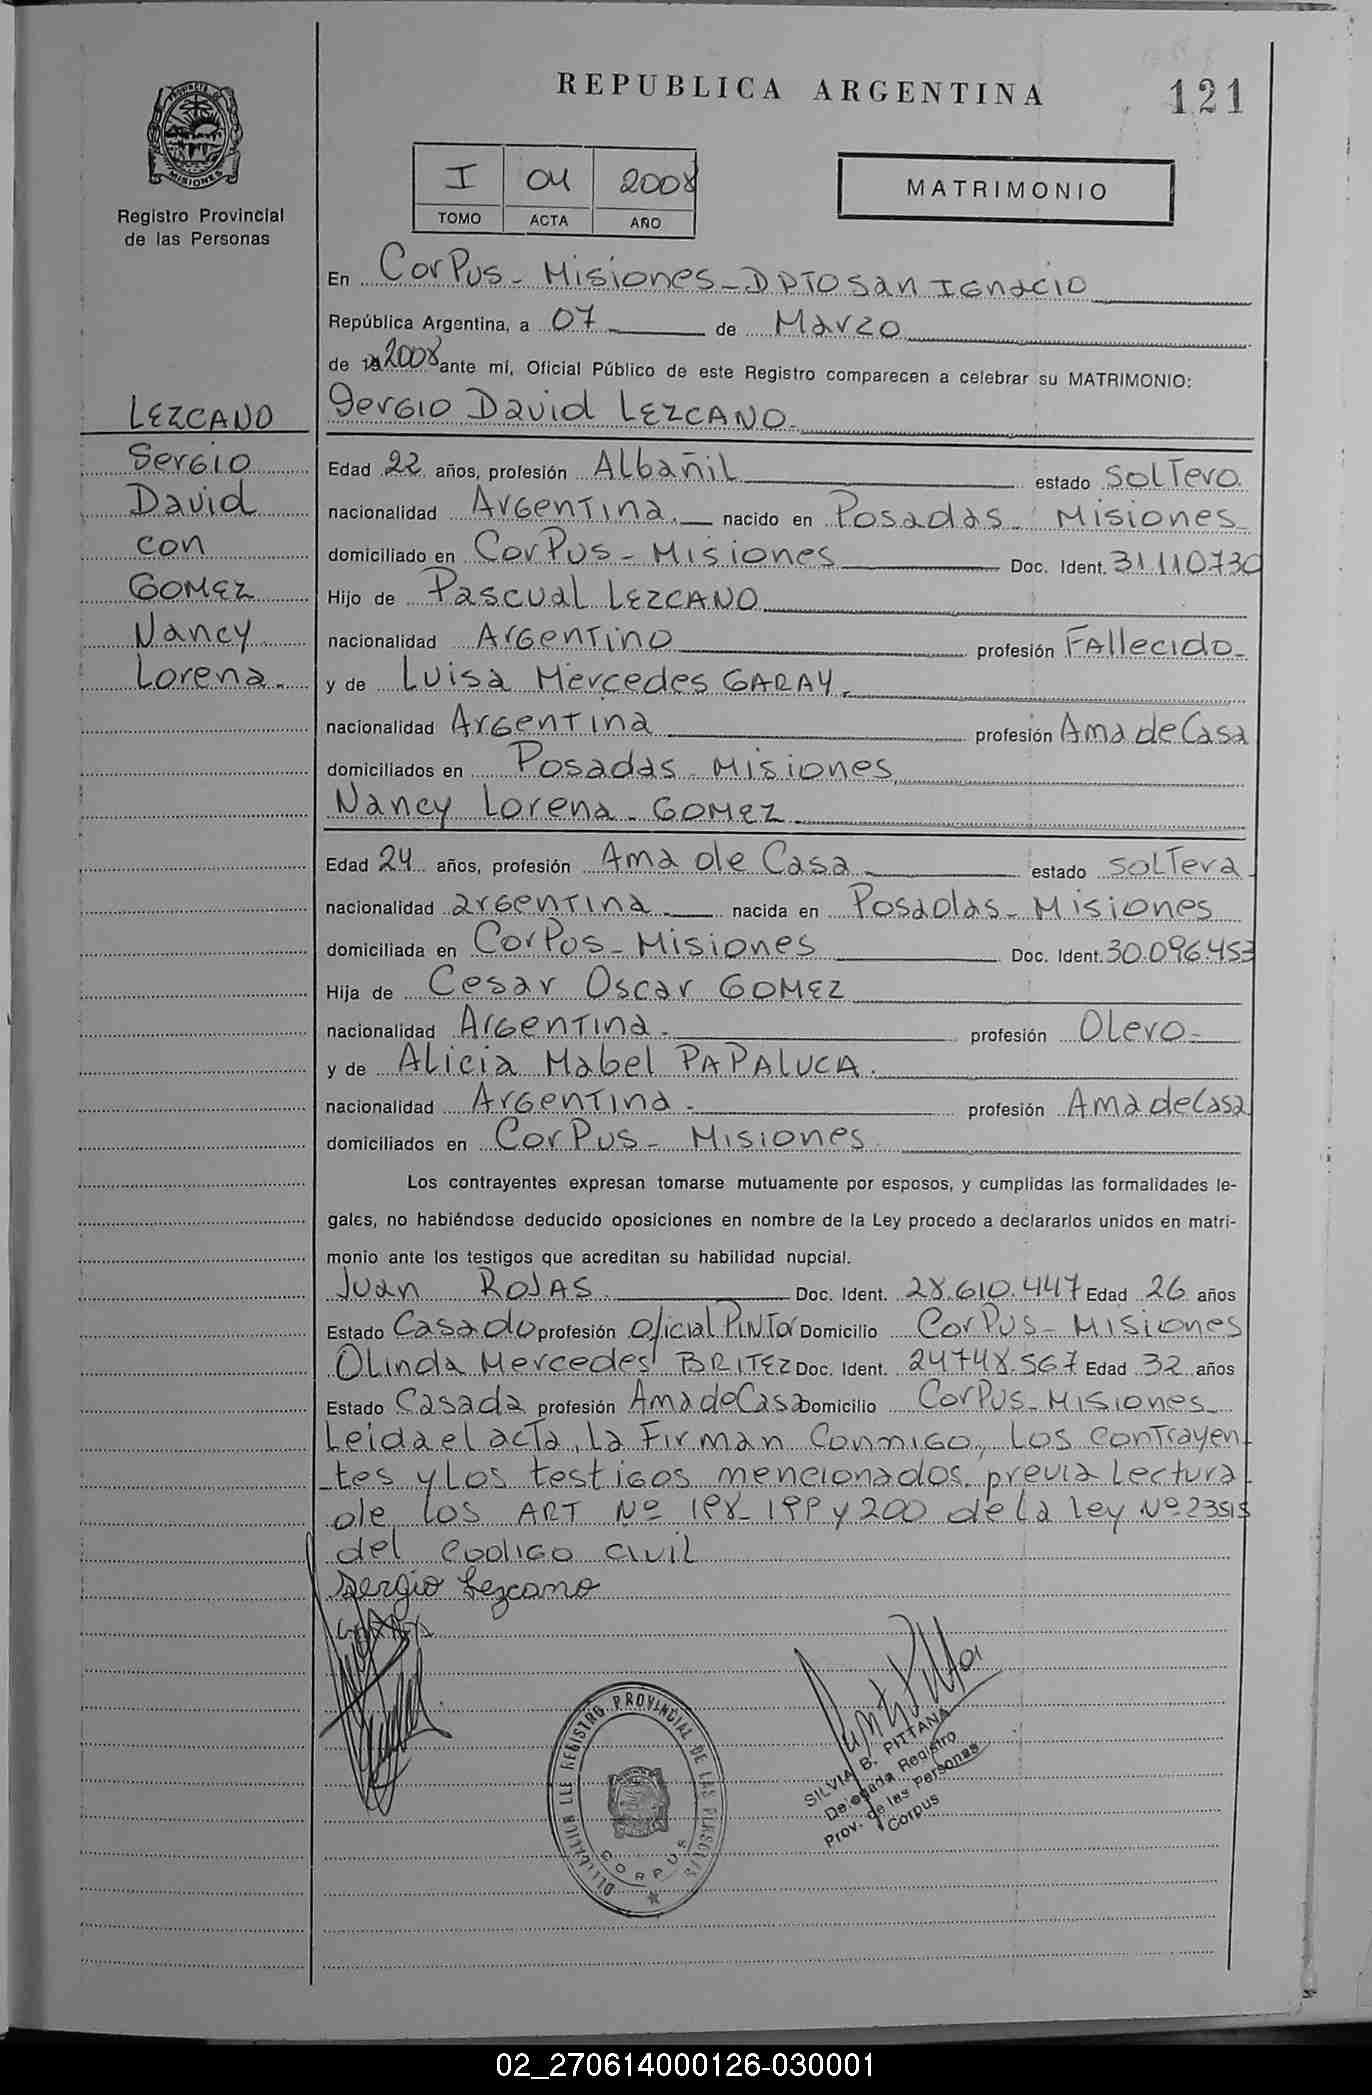 REPUBLICA ARGENTINA
121
PROVINCIA DE
MISIONES
Registro Provincial
de las Personas
I 04 2008
TOMO ACTA AÑO
MATRIMONIO
En Corpus - Misiones - DPTO San Ignacio
República Argentina, a 07 de Marzo
de 19 2008 ante mí, Oficial Público de este Registro comparecen a celebrar su MATRIMONIO:
LEZCANO
Sergio
David
con
GOMEZ
Nancy
Lorena.
Sergio David LEZCANO.
Edad 22 años, profesión Albañil estado Soltero
nacionalidad Argentina. nacido en Posadas - Misiones
domiciliado en Corpus - Misiones Doc. Ident. 31110730
Hijo de Pascual LEZCANO
nacionalidad Argentino profesión Fallecido
y de Luisa Mercedes GARAY.
nacionalidad Argentina profesión Ama de Casa
domiciliados en Posadas - Misiones
Nancy Lorena - GOMEZ
Edad 24 años, profesión Ama de Casa estado Soltera
nacionalidad argentina nacida en Posadas - Misiones
domiciliada en Corpus - Misiones Doc. Ident. 30.096.453
Hija de Cesar Oscar GOMEZ
nacionalidad Argentina. profesión Olero
y de Alicia Mabel PAPALUCA.
nacionalidad Argentina. profesión Ama de Casa
domiciliados en Corpus - Misiones
Los contrayentes expresan tomarse mutuamente por esposos, y cumplidas las formalidades le-
gales, no habiéndose deducido oposiciones en nombre de la Ley procedo a declararlos unidos en matri-
monio ante los testigos que acreditan su habilidad nupcial.
Juan ROJAS Doc. Ident. 28.610.447 Edad 26 años
Estado Casado profesión oficial Pintor Domicilio Corpus - Misiones
Olinda Mercedes BRITEZ Doc. Ident. 24748.567 Edad 32 años
Estado Casada profesión Ama de Casa Domicilio Corpus - Misiones
Leida el acta, la Firman Conmigo, Los Contrayen
tes y Los testigos mencionados. previa Lectura
de los ART Nº 198 - 199 y 200 de la ley Nº 23515
del Codigo Civil
Sergio Lezcano
REGISTRO PROVINCIAL DE LAS PERSONAS
CORPUS
SILVIA B. PITTANA
Delegada Registro
Prov. de las Personas
Corpus
02_270614000126-030001